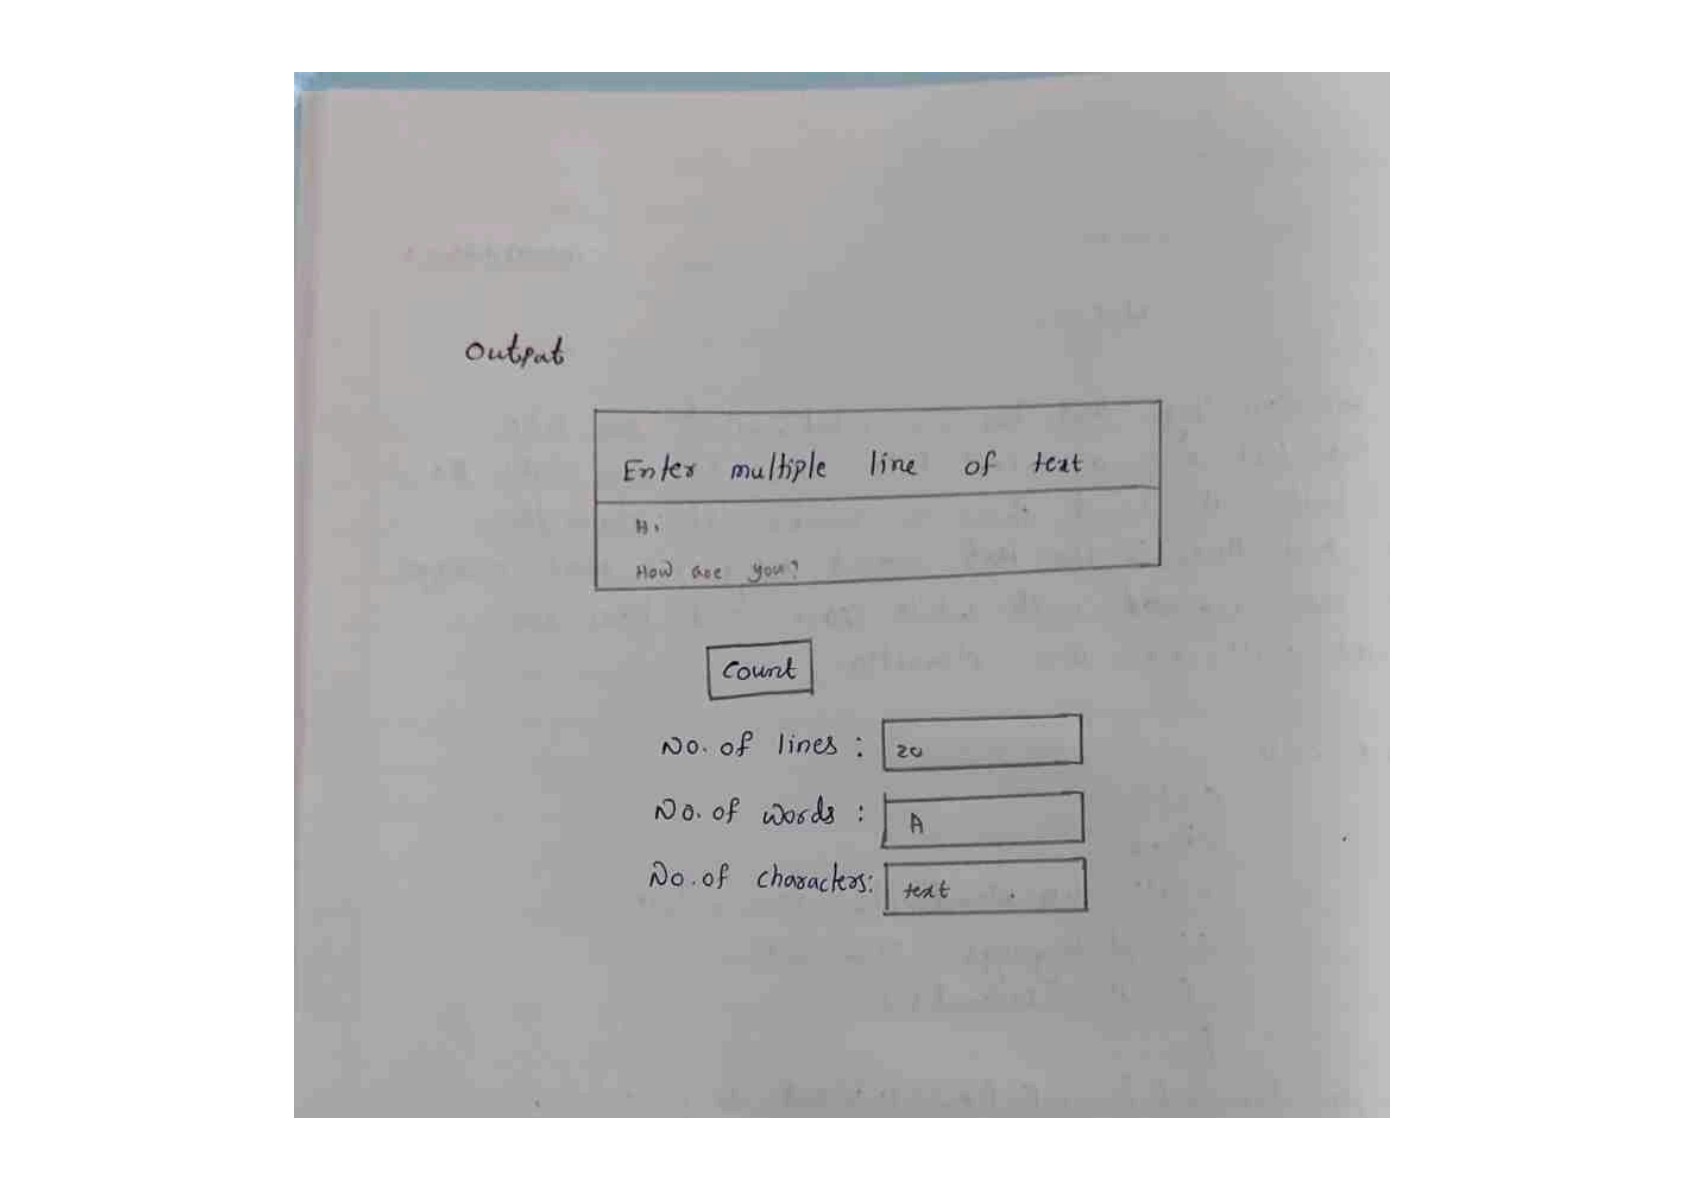 Output
Enter multiple line of text
Hi
How are you?
Count
No. of lines : 20
No. of words : A
No. of characters: text